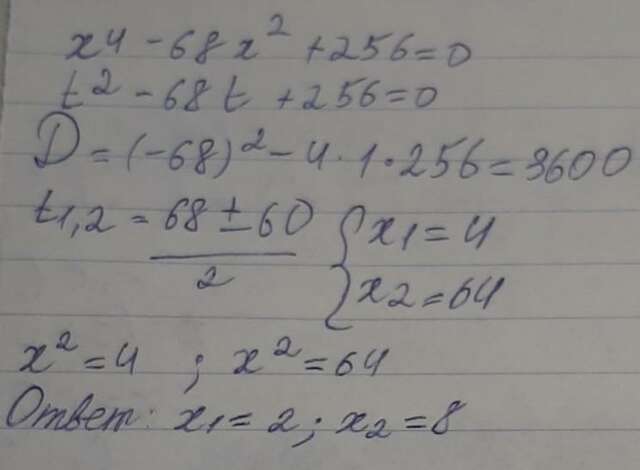 x4 - 68x² + 256 = 0
t² - 68t + 256 = 0
D = (-68)² - 4 · 1 · 256 = 3600
t1,2 = 68 ± 60 / 2 { x1 = 4
x2 = 64
x² = 4 ; x² = 64
Ответ: x1 = 2 ; x2 = 8